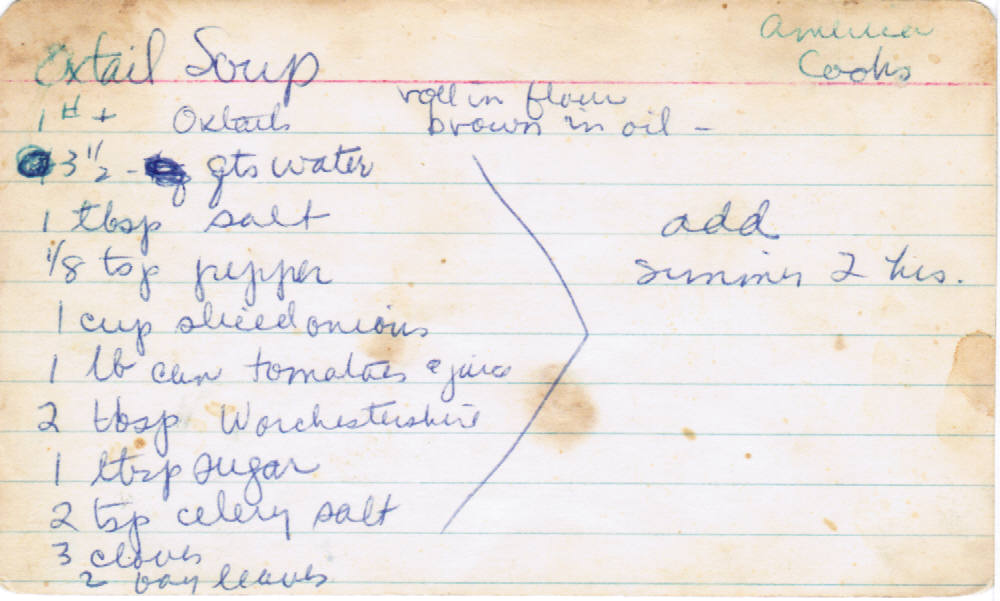 Oxtail Soup
America
Cooks
1 # + Oxtails
roll in flour
brown in oil -
3 1/2 - qts water
1 tbsp salt
1/8 tsp pepper
1 cup sliced onions
1 lb can tomatoes & juice
2 tbsp Worchestershire
1 tbsp sugar
2 tsp celery salt
3 cloves
2 bay leaves
add
simmer 2 hrs.